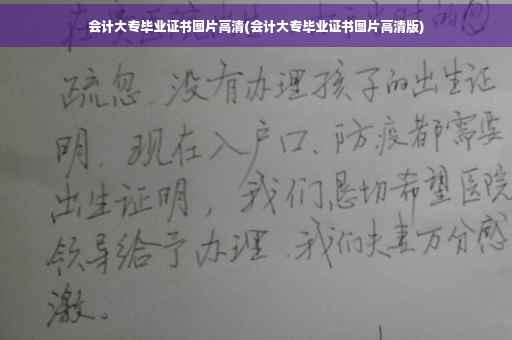 会计大专毕业证书图片高清(会计大专毕业证书图片高清版)
疏忽,没有办理孩子的出生证
明,现在入户口、防疫都需要
出生证明,我们恳切希望医院
领导给予办理,我们夫妻万分感
激。